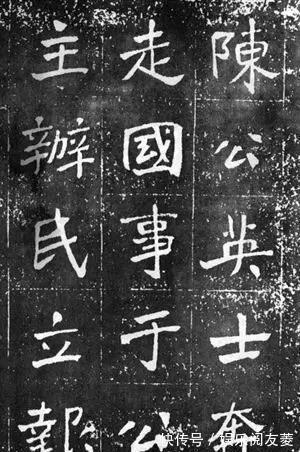 陳公英士奔
走國事于公
主辦民立報
快传号／娱乐阅友菱